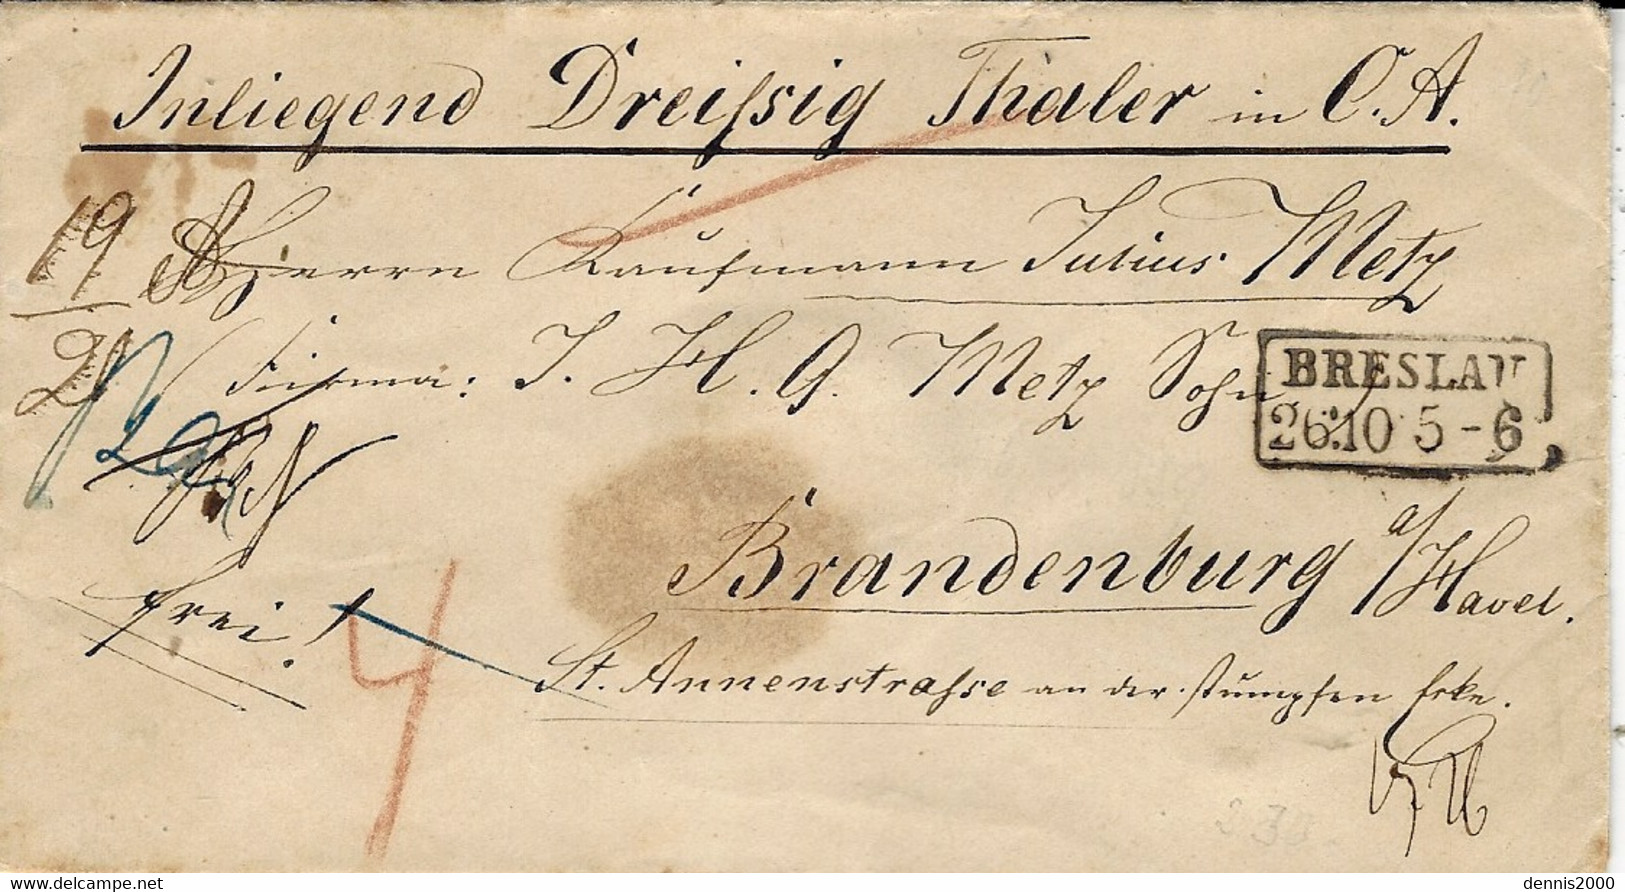 Inliegend Dreißig Thaler in C. A.
19
Herrn Kaufmann Julius Metz
21
(Firma: J. H. G. Metz Sohn)
BRESLAU
26.10 5-6
Brandenburg a/Havel.
frei!
4
St. Annenstraße an der stumpfen Ecke.
dennis2000